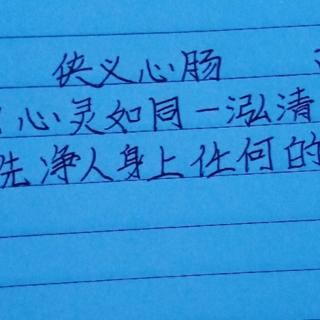 侠义心肠
心灵如同一泓清
洗净人身上任何的